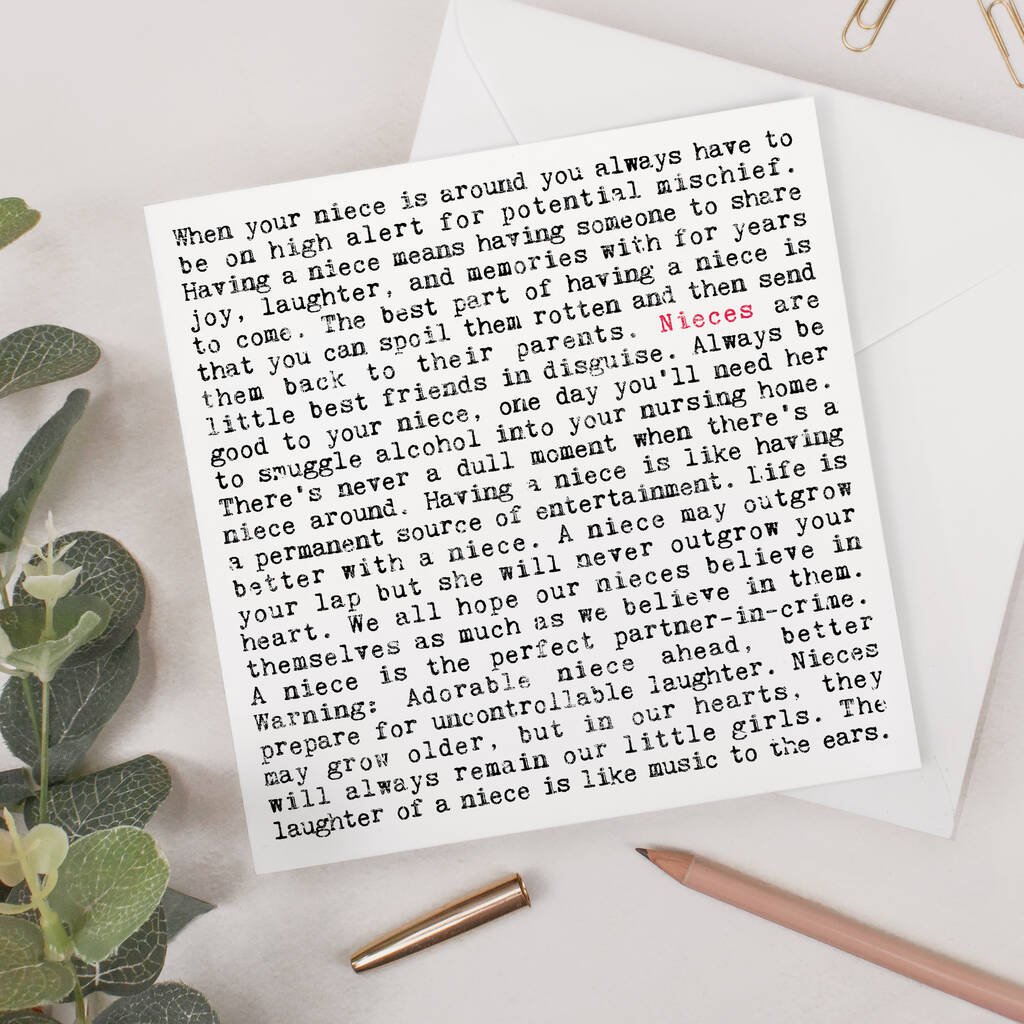 When your niece is around you always have to
be on high alert for potential mischief.
Having a niece means having someone to share
joy, laughter, and memories with for years
to come. The best part of having a niece is
that you can spoil them rotten and then send
them back to their parents. Nieces are
little best friends in disguise. Always be
good to your niece, one day you'll need her
to smuggle alcohol into your nursing home.
There's never a dull moment when there's a
niece around. Having a niece is like having
a permanent source of entertainment. Life is
better with a niece. A niece may outgrow
your lap but she will never outgrow your
heart. We all hope our nieces believe in
themselves as much as we believe in them.
A niece is the perfect partner-in-crime.
Warning: Adorable niece ahead, better
prepare for uncontrollable laughter. Nieces
may grow older, but in our hearts, they
will always remain our little girls. The
laughter of a niece is like music to the ears.